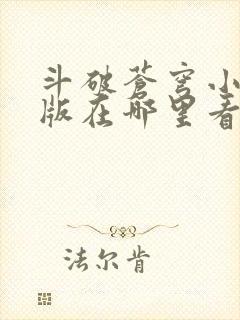 斗破苍穹小
版在哪里看
法尔肯